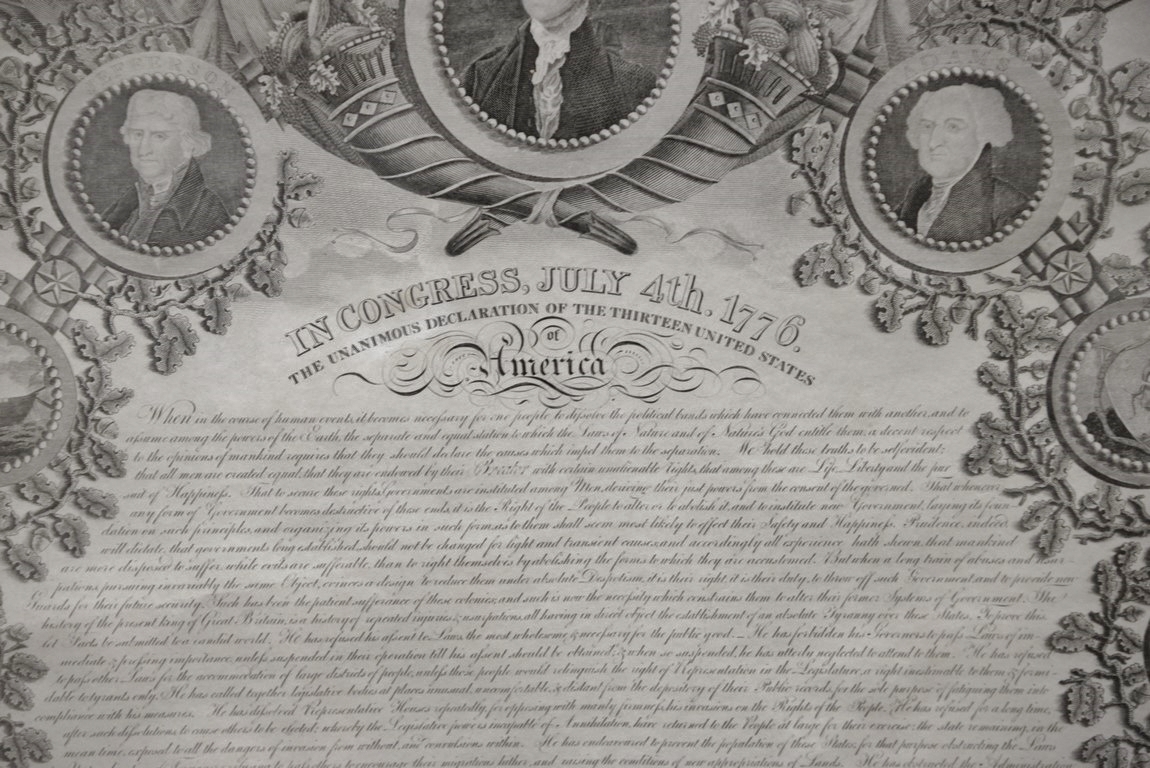 IN CONGRESS, JULY 4th. 1776.
THE UNANIMOUS DECLARATION OF THE THIRTEEN UNITED STATES
of
America
When in the course of human events, it becomes necessary for one people to dissolve the political bands which have connected them with another, and to
assume among the powers of the Earth, the separate and equal station to which the Laws of Nature and of Nature's God entitle them, a decent respect
to the opinions of mankind requires that they should declare the causes which impel them to the separation. We hold these truths to be selfevident;
that all men are created equal, that they are endowed by their Creator with certain unalienable rights, that among these are Life, Liberty and the pur
suit of Happiness. That to secure these rights, Governments are instituted among Men, deriving their just powers from the consent of the governed. That whenever
any form of Government becomes destructive of these ends, it is the Right of the People to alter or to abolish it, and to institute new Government, laying its foun
dation on such principles, and organizing its powers in such form, as to them shall seem most likely to effect their Safety and Happiness. Prudence, indeed
will dictate, that governments long established, should not be changed for light and transient causes, and accordingly all experience hath shewn, that mankind
are more disposed to suffer while evils are sufferable, than to right themselves by abolishing the forms to which they are accustomed. But when a long train of abuses and usur
pations, pursuing invariably the same Object, evinces a design to reduce them under absolute Despotism, it is their right, it is their duty, to throw off such Government, and to provide new
Guards for their future security. Such has been the patient sufferance of these colonies; and such is now the necessity which constrains them to alter their former Systems of Government. The
history of the present king of Great Britain, is a history of repeated injuries & usurpations, all having in direct object the establishment of an absolute Tyranny over these States. To prove this,
let Facts be submitted to a candid world. He has refused his assent to Laws, the most wholesome & necessary for the public good. — He has forbidden his Governors to pass Laws of im
mediate & pressing importance, unless suspended in their operation till his assent should be obtained; & when so suspended, he has utterly neglected to attend to them. He has refused
to pass other Laws for the accommodation of large districts of people, unless those people would relinquish the right of Representation in the Legislature, a right inestimable to them & formi
dable to tyrants only. He has called together legislative bodies at places unusual, uncomfortable, & distant from the depository of their Public records, for the sole purpose of fatiguing them into
compliance with his measures. He has dissolved Representative Houses repeatedly, for opposing with manly firmness his invasions on the Rights of the People. He has refused for a long time,
after such dissolutions, to cause others to be elected; whereby the Legislative powers incapable of Annihilation, have returned to the People at large for their exercise; the state remaining, in the
mean time, exposed to all the dangers of invasion from without, and convulsions within. He has endeavoured to prevent the population of these States, for that purpose obstructing the Laws
to pass others to encourage their migrations hither, and raising the conditions of new appropriations of Lands. He has obstructed the Administration